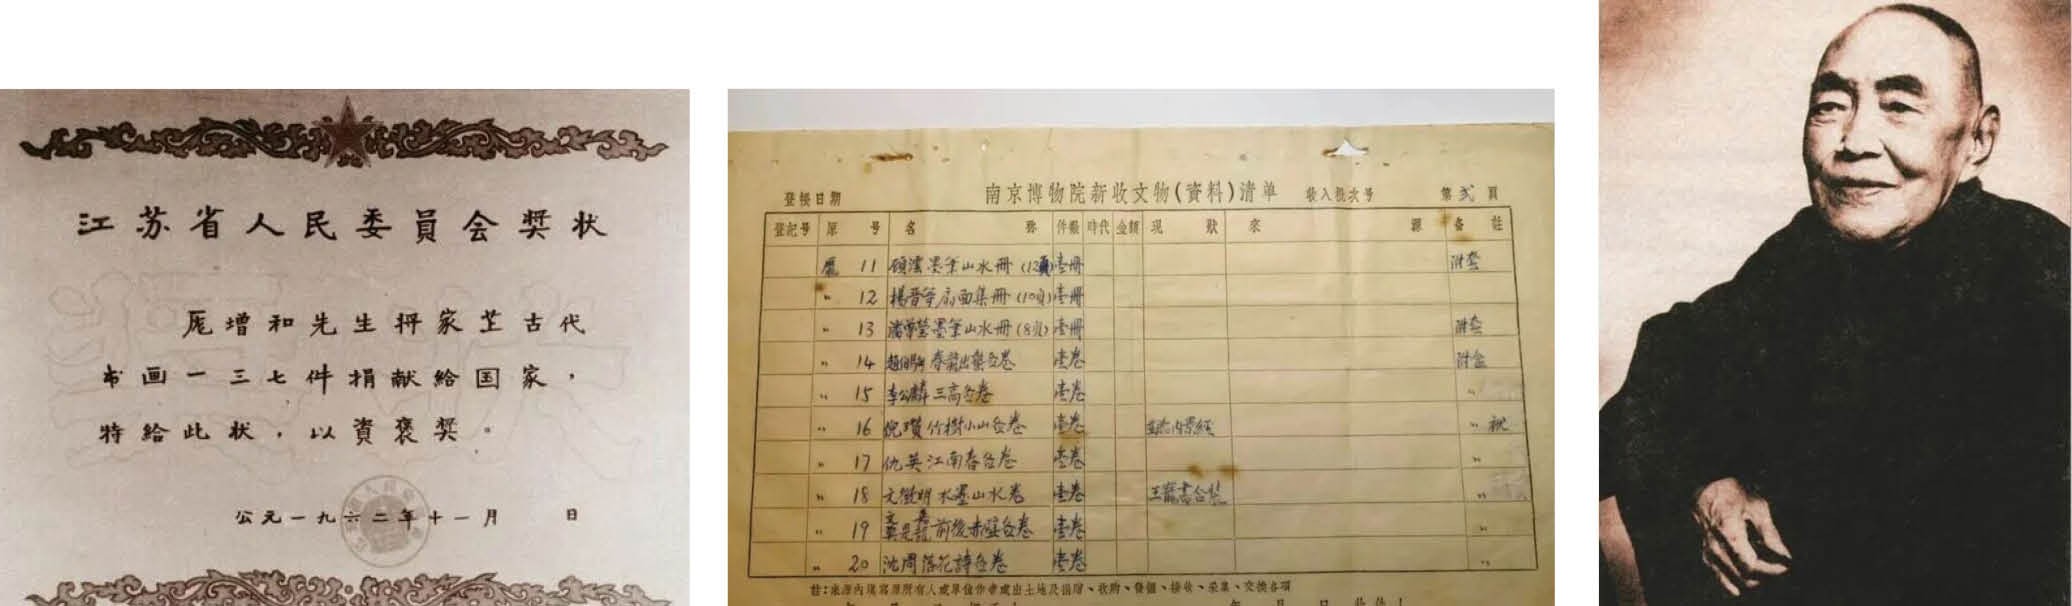 江苏省人民委員会奖状
厐增和先生将家芷古代
书画一三七件捐献給国家，
特給此状，以資褒奖。
公元一九六二年十一月 日
登候日期 南京博物院新收文物(資料)清单 收入批次号 第 弍 頁
登記号 原 号 名 称 件數 時代 金額 現 狀 來 源 备 註
厐 11 顾澐墨笔山水冊 (12頁) 壹冊 附套
〃 12 楊晋等扇面集冊 (10頁) 壹冊
〃 13 墨笔山水冊 (8頁) 壹冊 附套
〃 14 壹卷
〃 15 李公麟三高图卷 壹卷 〃
〃 16 倪瓚竹樹小山图卷 壹卷 〃
〃 17 仇英江南春图卷 壹卷 〃
〃 18 文徵明水墨山水卷 壹卷 王寵書合裝 〃
〃 19 前後赤壁图卷 壹卷 〃
〃 20 沈周落花詩图卷 壹卷 〃
註：来源內填寫原所有人或單位作者或出土地及捐贈、收购、發掘、接收、采集、交換各項